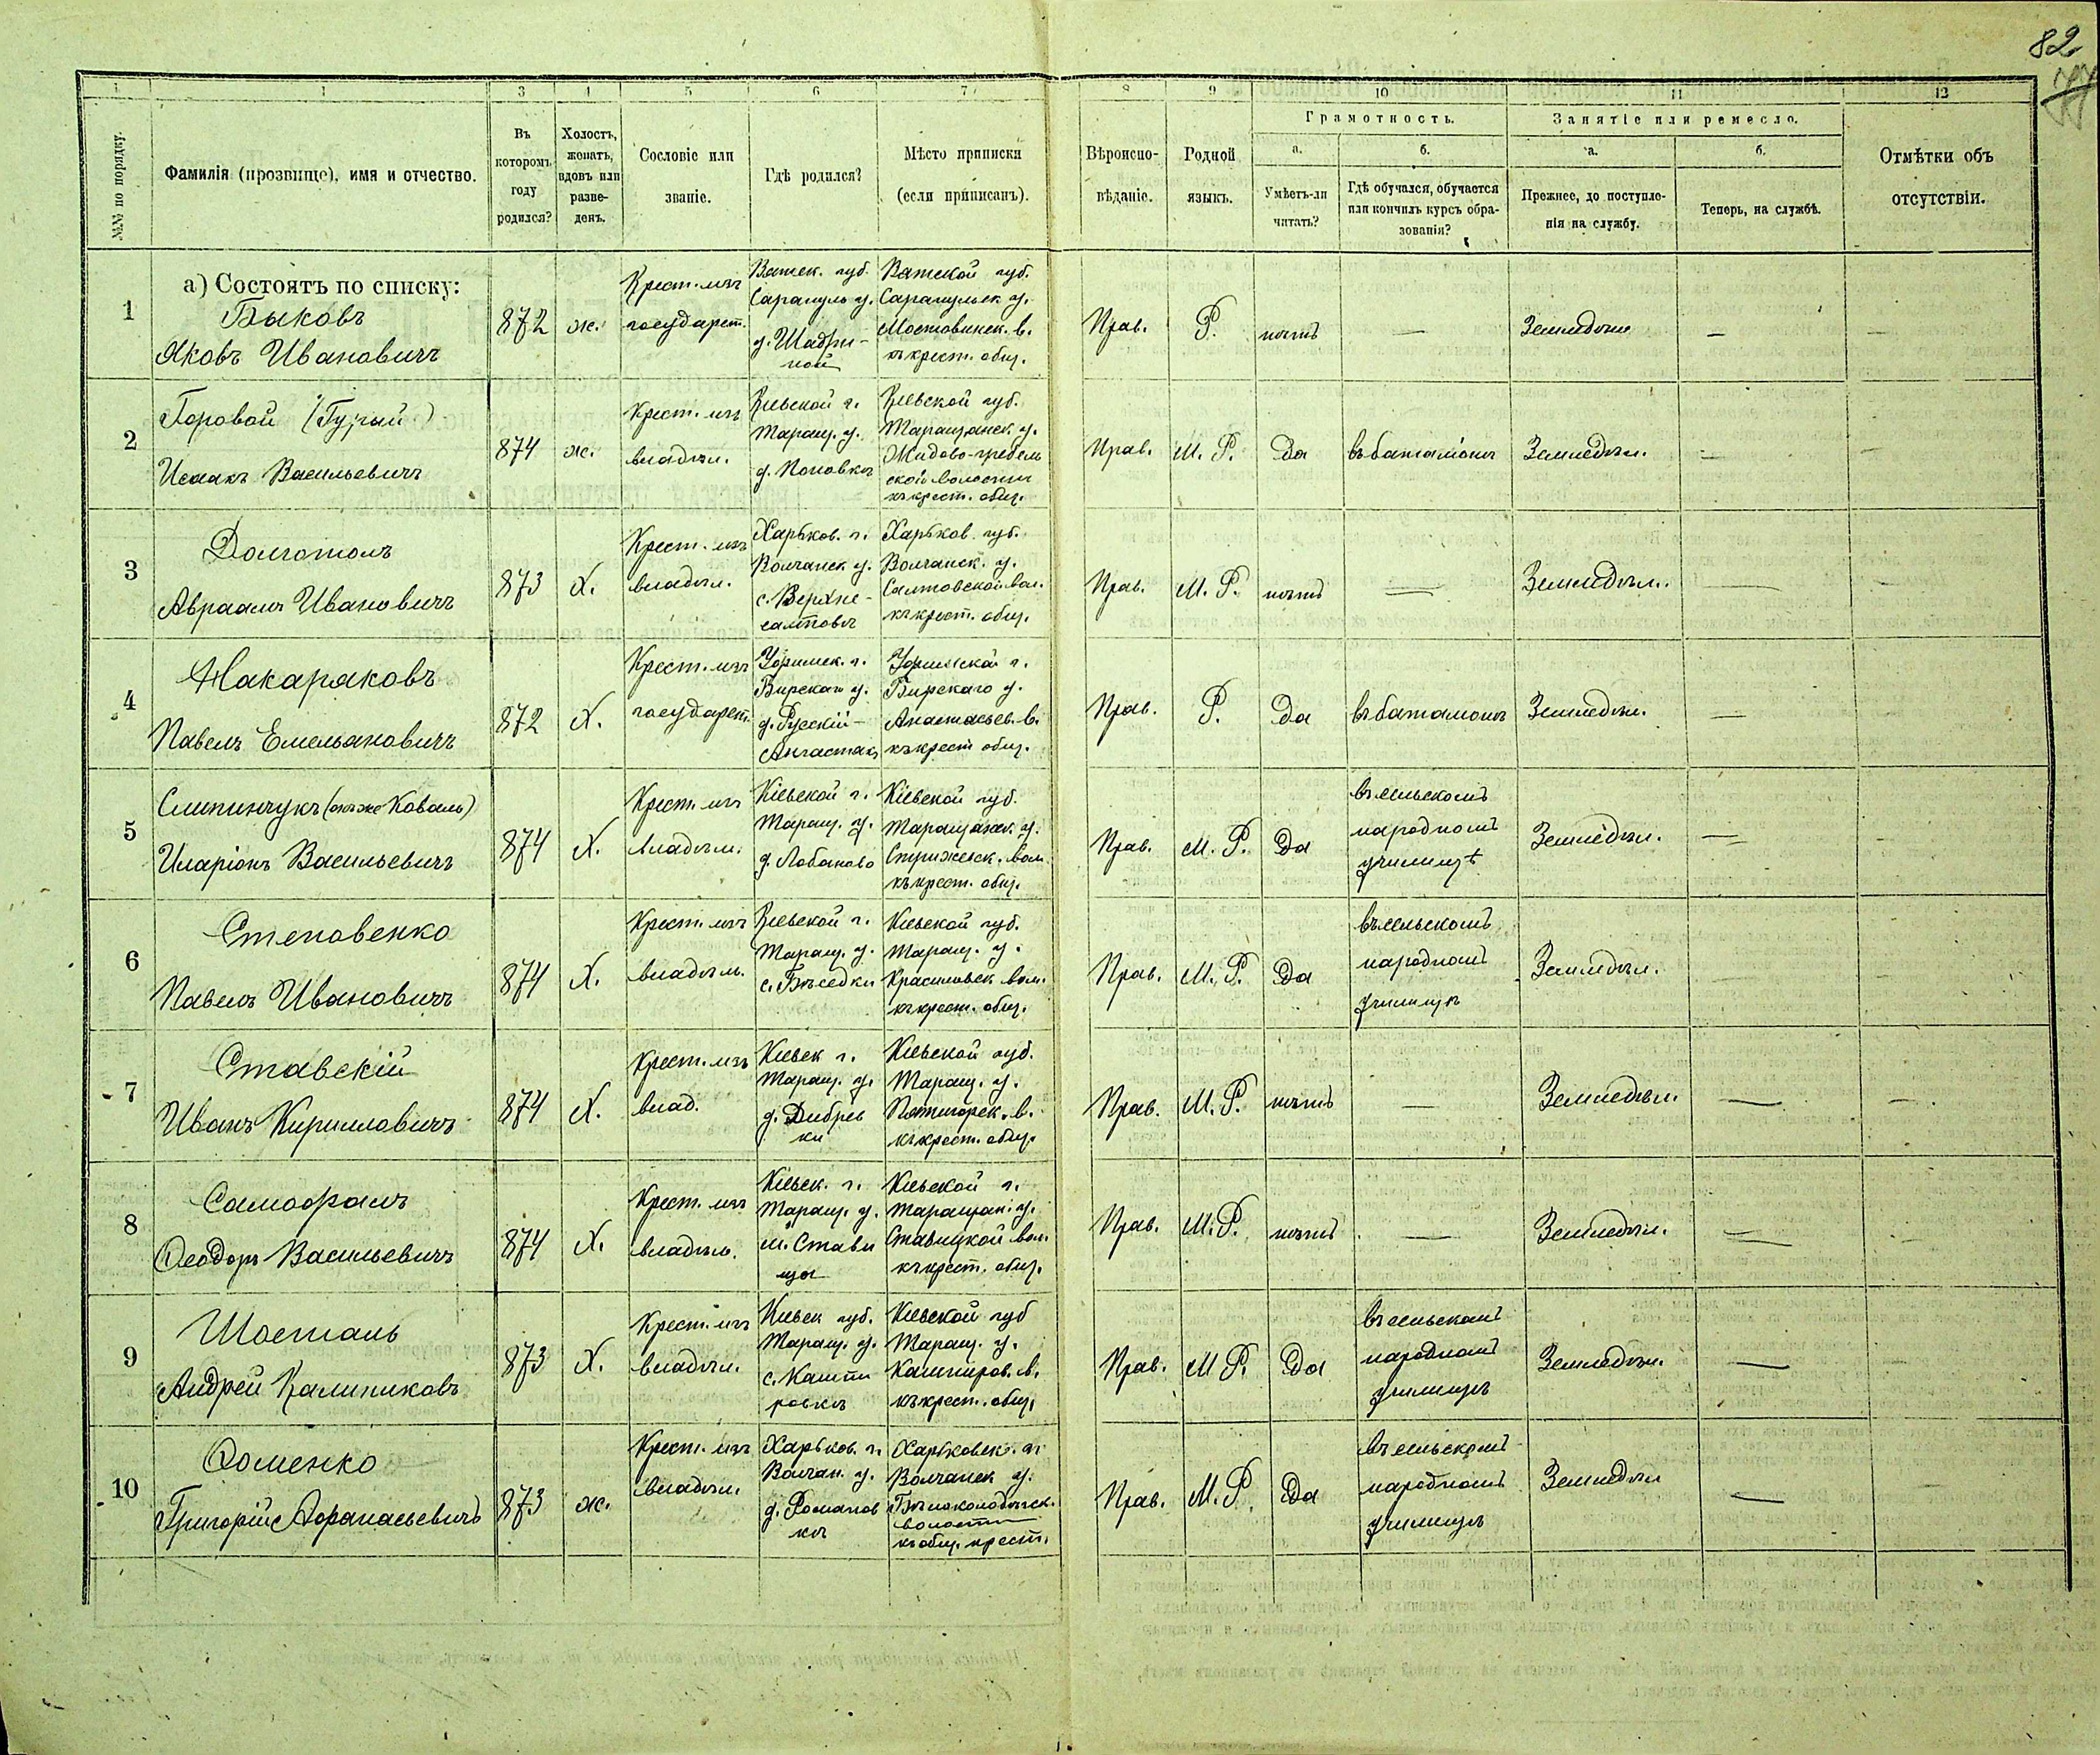 82
77
1
1
3
4
5
6
7
8
9
10
11
12
№№ по порядку.
Фамилія (прозвище), имя и отчество.
Въ которомъ году родился?
Холостъ, женатъ, вдовъ или разведенъ.
Сословіе или званіе.
Гдѣ родился?
Мѣсто приписки (если приписанъ).
Вѣроисповѣданіе.
Родной языкъ.
Грамотность.
а. Умѣетъ-ли читать?
б. Гдѣ обучался, обучается или кончилъ курсъ образованія?
Занятіе или ремесло.
а. Прежнее, до поступленія на службу.
б. Теперь, на службѣ.
Отмѣтки объ отсутствіи.
а) Состоятъ по списку:
1
Быковъ
Яковъ Ивановичъ
872
ж.
Крест. изъ
государст.
Вятск. губ.
Сарапуль у.
д. Шадри-
ной
Вятской губ.
Сарапульск у.
Мостовинск. в.
къ крест. общ.
Прав.
Р.
нѣтъ
—
Земледѣл.
—
—
2
Горовой
Исаакъ Васильевичъ
874
ж.
Крест. изъ
владѣл.
Кіевской г.
Таращ. у.
д. Поповкѣ
Кіевской губ.
Таращанск. у.
Жидово-гребель
ской волости
къ крест. общ.
Прав.
М. Р.
Да
въ баталіонѣ
Земледѣл.
—
—
3
Долготолъ
Авраамъ Ивановичъ
873
Х.
Крест. изъ
владѣл.
Харьков. г.
Волчанск у.
с. Верхне-
салтовѣ
Харьков. губ.
Волчанск. у.
Салтовской вол.
къ крест. общ.
Прав.
М. Р.
нѣтъ
—
Земледѣл.
—
—
4
Накаряковъ
Павелъ Емельяновичъ
872
Х.
Крест. изъ
государст.
Уфимск. г.
Бирскаго у.
д. Русскій-
Уфимской г.
Бирскаго у.
къ крест общ.
Прав.
Р.
Да
въ баталіонѣ
Земледѣл.
—
5
Слипинчукъ (онъ же Коваль)
Иларіонъ Васильевичъ
874
Х.
Крест. изъ
владѣл.
Кіевской г.
Таращ. у.
д. Лобачево
Кіевской губ.
Таращанск. у.
Стрижевск. вол.
къ крест. общ.
Прав.
М. Р.
Да
въ сельскомъ
народномъ
училищѣ
Земледѣл.
—
6
Степовенко
Павелъ Ивановичъ
874
Х.
Крест. изъ
владѣль.
Кіевской г.
Таращ. у.
с. Бѣседки
Кіевской губ.
Таращ. у.
Красиловск вол.
къ крест. общ.
Прав.
М. Р.
Да
въ сельскомъ
народномъ
училищѣ
Земледѣл.
7
Ставскій
Иванъ Кирилловичъ
874
Х.
Крест. изъ
влад.
Кіевск г.
Таращ. у.
д. Дибрев
ки
Кіевской губ.
Таращ. у.
Пятигорск. в.
къ крест. общ.
Прав.
М. Р.
нѣтъ
—
Земледѣл.
—
—
8
Самофалъ
Ѳеодоръ Васильевичъ
874
Х.
Крест. изъ
владѣл.
Кіевск. г.
Таращ. у.
м. Стави
щѣ
Кіевской г.
Таращан. у.
Ставищской вол.
къ крест. общ.
Прав.
М. Р.
нѣтъ
—
Земледѣл.
—
9
Шосталь
Андрей Калиниковъ
873
Х.
Крест. изъ
владѣл.
Кіевск губ.
Таращ. у.
с. Кашпи
ровкѣ
Кіевской губ
Таращ. у.
Кашпиров. в.
къ крест. общ.
Прав.
М Р.
Да
въ сельскомъ
народномъ
училищѣ
Земледѣл.
—
10
Ѳоменко
Григорій Афанасьевичъ
873
ж.
Крест. изъ
владѣл.
Харьков. г.
Волчан. у.
д. Романов
кѣ
Харьковск. г.
Волчанск у.
Бѣлоколодезск.
волости
къ общ. крест.
Прав.
М. Р.
Да
въ сельскомъ
народномъ
училищѣ
Земледѣл
—